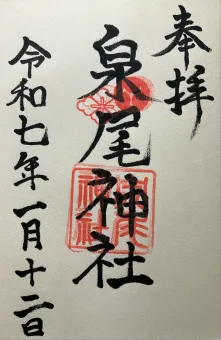 奉拝
泉尾神社
令和七年一月十二日